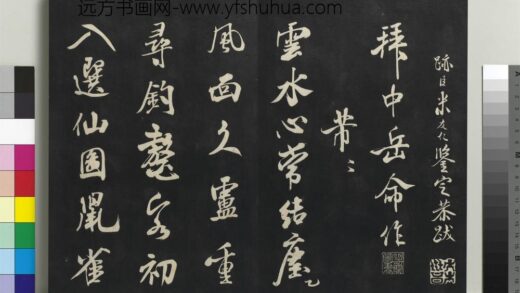 远方书画网-www.yfshuhua.com
跡臣米友仁鑒定恭跋
拜中岳命作
芾芾
雲水心常結塵
風面久盧重
尋釣鼇客初
入選仙圖鳳雀